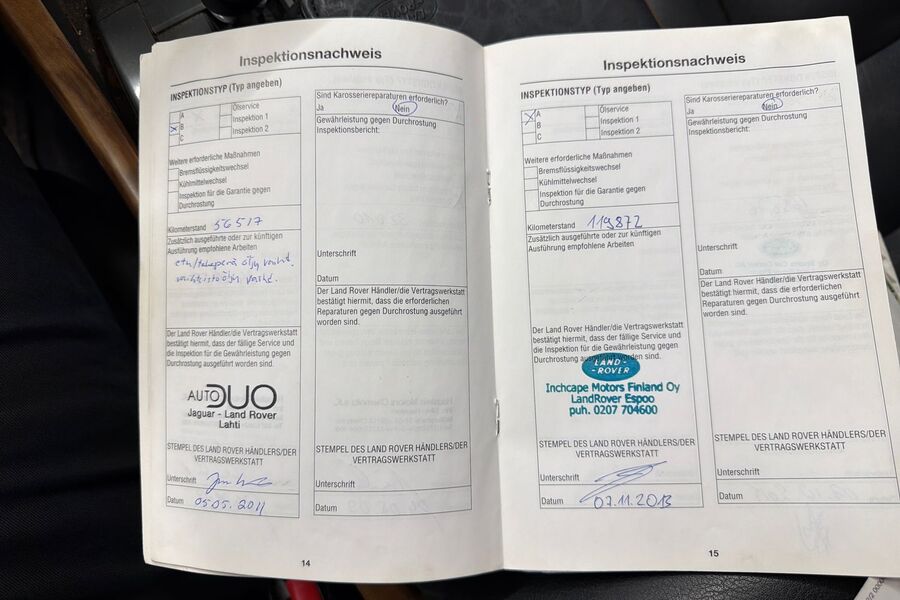 Inspektionsnachweis
INSPEKTIONSTYP (Typ angeben)
A
B
C
Ölservice
Inspektion 1
Inspektion 2
Weitere erforderliche Maßnahmen
Bremsflüssigkeitswechsel
Kühlmittelwechsel
Inspektion für die Garantie gegen
Durchrostung
Kilometerstand 56517
Zusätzlich ausgeführte oder zur künftigen
Ausführung empfohlene Arbeiten
etu/takaperä öljy vaihd.
vaihteistoöljy vaihd.
Der Land Rover Händler/die Vertragswerkstatt
bestätigt hiermit, dass der fällige Service und
die Inspektion für die Gewährleistung gegen
Durchrostung ausgeführt worden sind.
AUTO DUO
Jaguar - Land Rover
Lahti
STEMPEL DES LAND ROVER HÄNDLERS/DER
VERTRAGSWERKSTATT
Unterschrift
Datum 05.05.2011
Sind Karosseriereparaturen erforderlich?
Ja Nein
Gewährleistung gegen Durchrostung
Inspektionsbericht:
Unterschrift
Datum
Der Land Rover Händler/die Vertragswerkstatt
bestätigt hiermit, dass die erforderlichen
Reparaturen gegen Durchrostung ausgeführt
worden sind.
STEMPEL DES LAND ROVER HÄNDLERS/DER
VERTRAGSWERKSTATT
Unterschrift
Datum
14
Inspektionsnachweis
INSPEKTIONSTYP (Typ angeben)
A
B
C
Ölservice
Inspektion 1
Inspektion 2
Weitere erforderliche Maßnahmen
Bremsflüssigkeitswechsel
Kühlmittelwechsel
Inspektion für die Garantie gegen
Durchrostung
Kilometerstand 119872
Zusätzlich ausgeführte oder zur künftigen
Ausführung empfohlene Arbeiten
Der Land Rover Händler/die Vertragswerkstatt
bestätigt hiermit, dass der fällige Service und
die Inspektion für die Gewährleistung gegen
Durchrostung ausgeführt worden sind.
LAND-
-ROVER
Inchcape Motors Finland Oy
LandRover Espoo
puh. 0207 704600
STEMPEL DES LAND ROVER HÄNDLERS/DER
VERTRAGSWERKSTATT
Unterschrift
Datum 07.11.2013
Sind Karosseriereparaturen erforderlich?
Ja Nein
Gewährleistung gegen Durchrostung
Inspektionsbericht:
Unterschrift
Datum
Der Land Rover Händler/die Vertragswerkstatt
bestätigt hiermit, dass die erforderlichen
Reparaturen gegen Durchrostung ausgeführt
worden sind.
STEMPEL DES LAND ROVER HÄNDLERS/DER
VERTRAGSWERKSTATT
Unterschrift
Datum
15